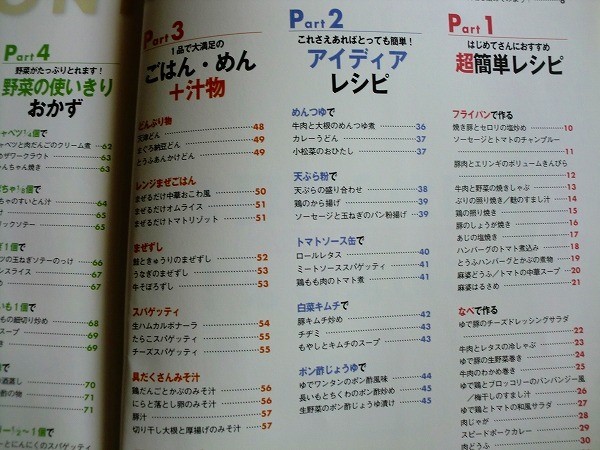 Part 1
はじめてさんにおすすめ
超簡単レシピ
フライパンで作る
焼き豚とセロリの塩炒め 10
ソーセージとトマトのチャンプルー
11
豚肉とエリンギのボリュームきんぴら
12
牛肉と野菜の焼きしゃぶ 13
ぶりの照り焼き/麩のすまし汁 14
鶏の照り焼き 15
豚のしょうが焼き 16
あじの塩焼き 17
ハンバーグのトマト煮込み 18
とうふハンバーグとかぶの煮物 19
麻婆どうふ/トマトの中華スープ 20
麻婆はるさめ 21
なべで作る
ゆで豚のチーズドレッシングサラダ
22
牛肉とレタスの冷しゃぶ 23
ゆで豚の生野菜巻き 24
牛肉のわかめ巻き 25
ゆで鶏とブロッコリーのバンバンジー風
/梅干しのすまし汁 26
ゆで鶏とトマトの和風サラダ 27
肉じゃが 28
スピードポークカレー 29
肉どうふ 30
Part 2
これさえあればとっても簡単!
アイディア
レシピ
めんつゆで
牛肉と大根のめんつゆ煮 36
カレーうどん 37
小松菜のおひたし 37
天ぷら粉で
天ぷらの盛り合わせ 38
鶏のから揚げ 39
ソーセージと玉ねぎのパン粉揚げ 39
トマトソース缶で
ロールレタス 40
ミートソーススパゲティ 41
鶏もも肉のトマト煮 41
白菜キムチで
豚キムチ炒め 42
チヂミ 43
もやしとキムチのスープ 43
ポン酢じょうゆで
ゆでワンタンのポン酢風味 44
長いもとちくわのポン酢炒め 45
生野菜のポン酢じょうゆ漬け 45
Part 3
1品で大満足の
ごはん・めん
+汁物
どんぶり物
天津どん 48
まぐろ納豆どん 49
とうふあんかけどん 49
レンジまぜごはん
まぜるだけ中華おこわ風 50
まぜるだけオムライス 51
まぜるだけトマトリゾット 51
まぜずし
鮭ときゅうりのまぜずし 52
うなぎのまぜずし 53
牛そぼろずし 53
スパゲッティ
生ハムカルボナーラ 54
たらこスパゲッティ 55
チーズスパゲッティ 55
具だくさんみそ汁
鶏だんごとかぶのみそ汁 56
にらと落とし卵のみそ汁 56
豚汁 57
切り干し大根と厚揚げのみそ汁 57
Part 4
野菜がたっぷりとれます!
野菜の使いきり
おかず
ャベツ1/4個で
ャベツと肉だんごのクリーム煮 62
めザワークラウト 63
んちゃん焼き 63
ちゃ1/8個で
ちゃのすいとん汁 64
ロックソテー 65
65
ぎ1個で
ツの玉ねぎソテーのっけ 66
ンスライス 67
め 67
いも1個で
もの細切り炒め 68
スープ 69
69
で
酒蒸し 70
酢の物 71
71
リー1/2~1個で
ーとにんにくのスパゲティ